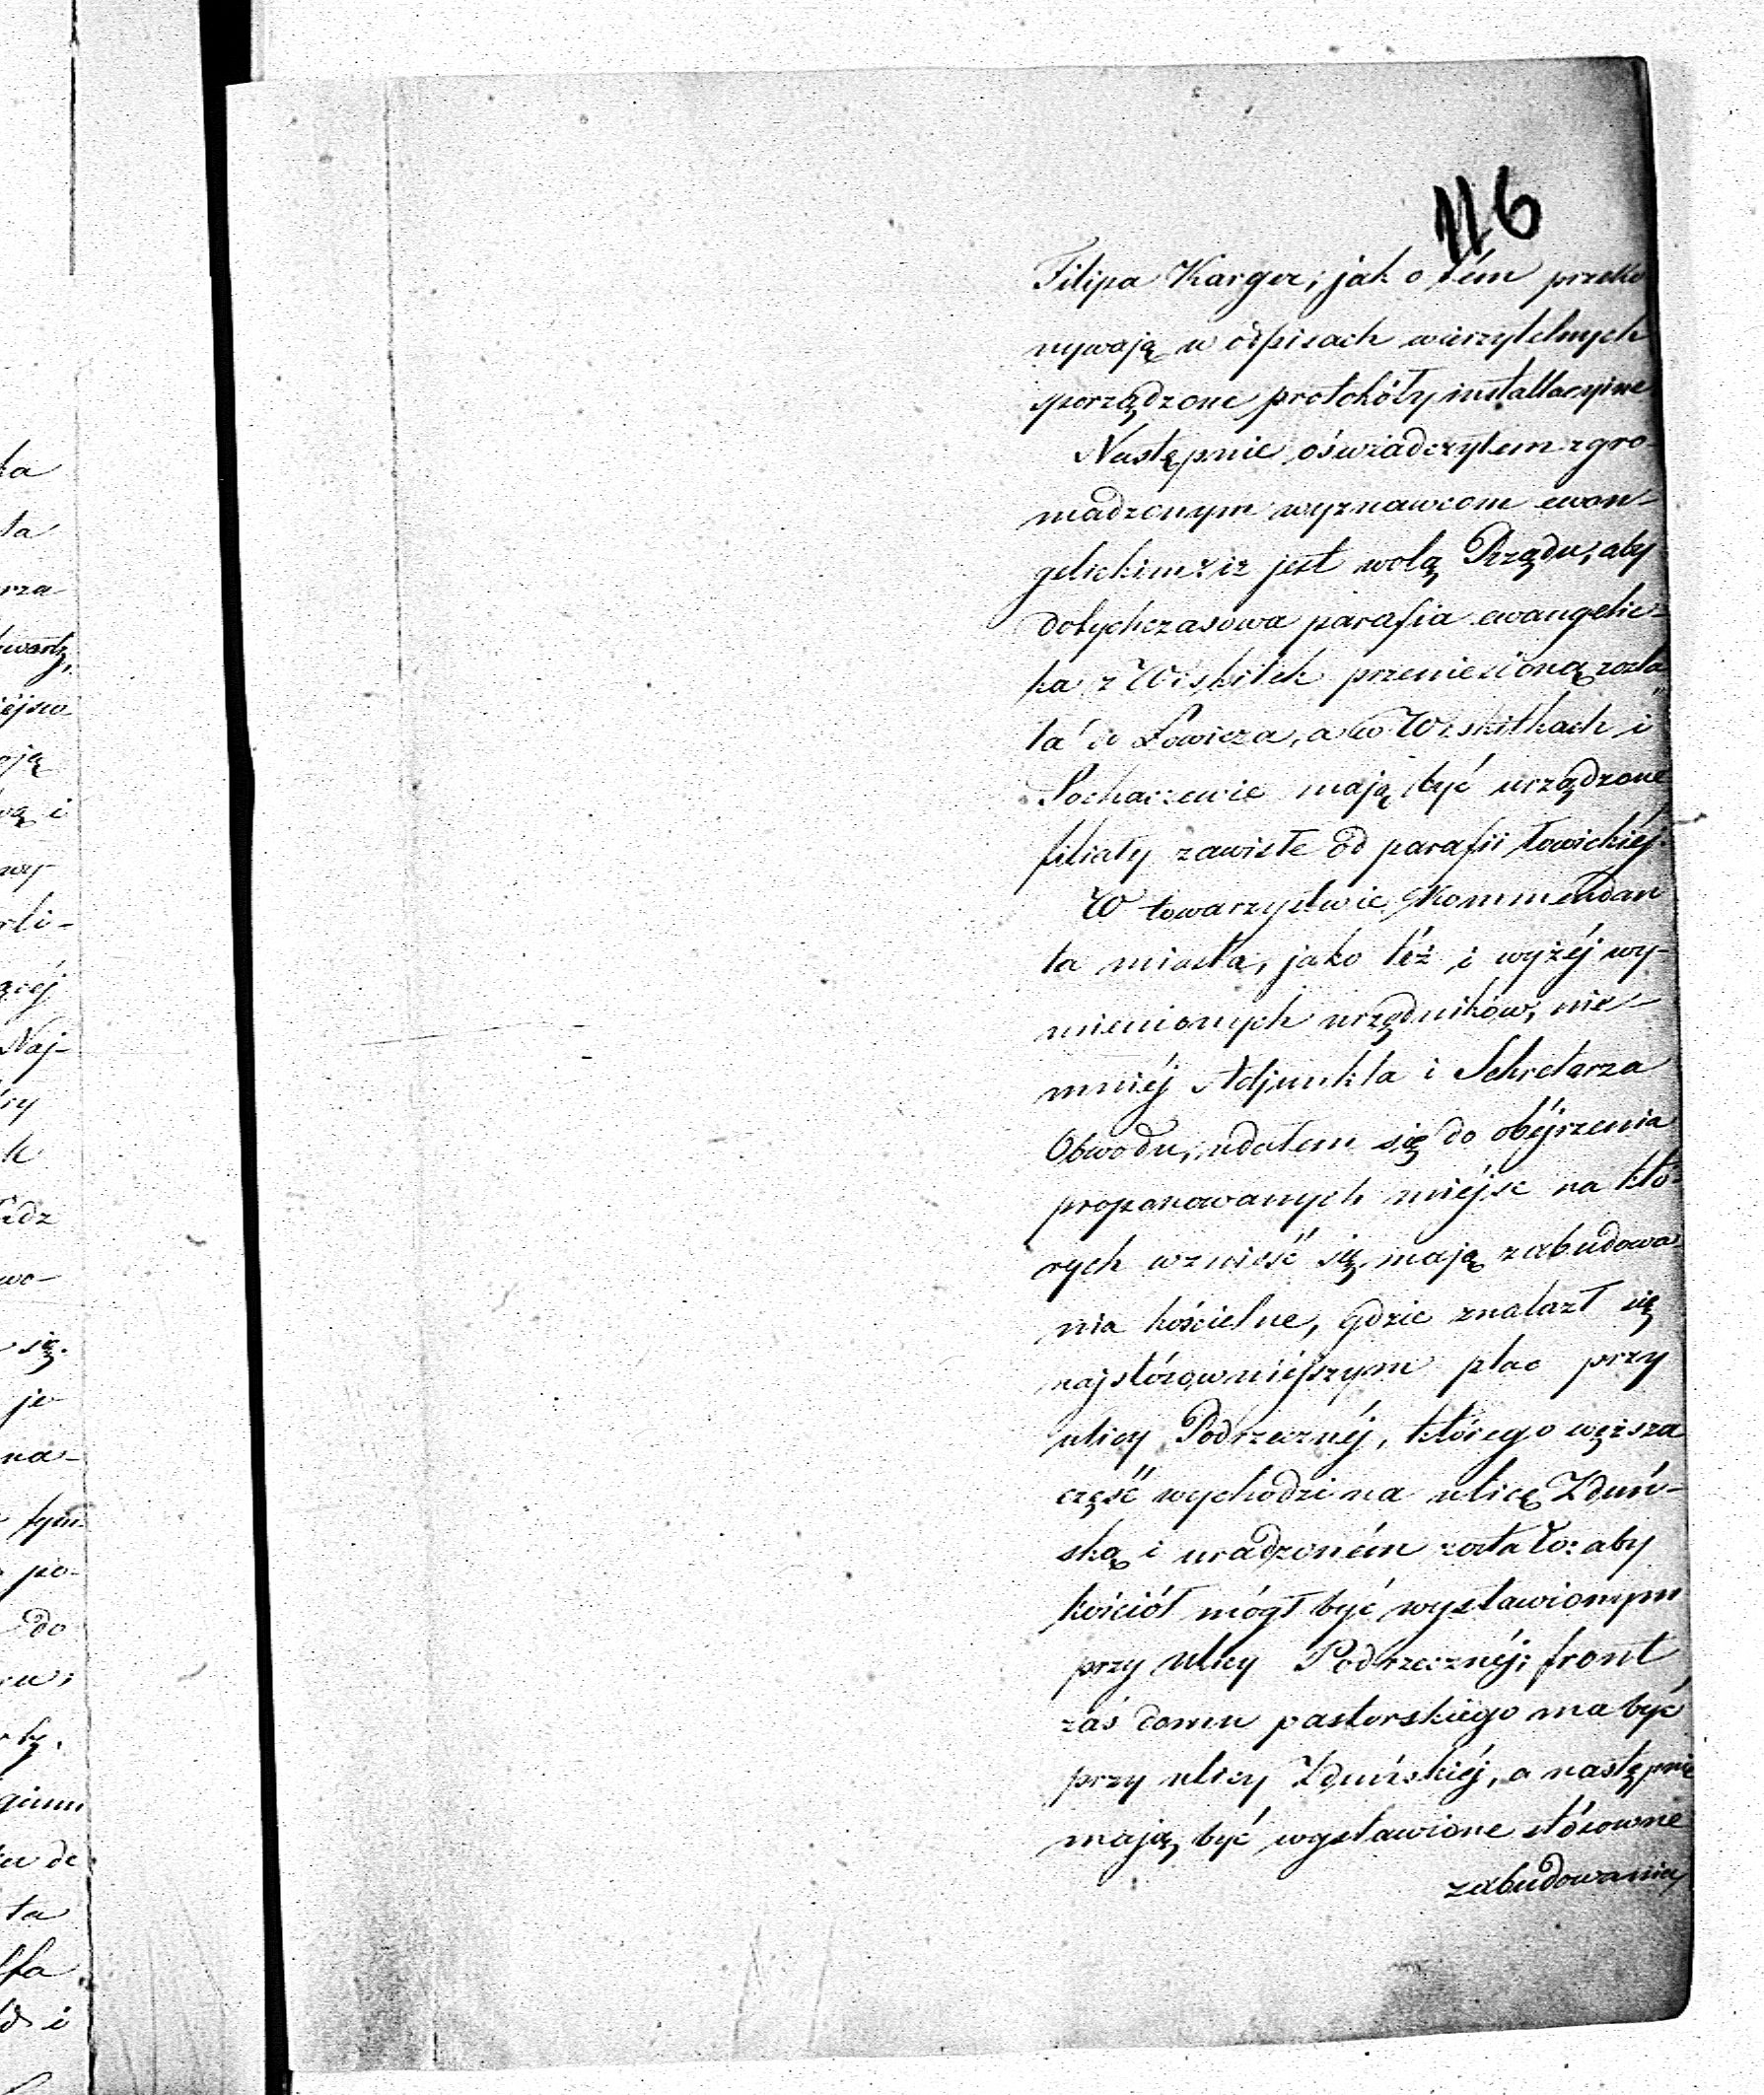 116
Filipa Karger; jak o tém przeko
nywają w odpisach wierzytelnych
sporządzone protokóły installacyine
Następnie oświadczyłem zgro-
madzonym wyznawcom ewan-
gelickim: iż jest wolą Rządu, aby
dotychczasowa parafia ewangelic-
ka z Wiskitek przeniesioną zosta
ła do Łowicza, a w Wiskitkach i
Sochaczewie mają być urządzone
filiały zawisłe od parafii łowickiéj.
W towarzystwie Kommendan
ta miasta, jako téż i wyżéj wy-
mienionych urzędników, nie-
mniéj Adjunkta i Sekretarza
Obwodu, udałem się do obéjrzenia
proponowanych miéjsc na któ-
rych wznieść się mają zabudowa-
nia kościelne, gdzie znalazł się
najstósowniéjszym plac przy
ulicy Podrzecznéj, którego węższa
część wychodzi na ulicę Zduń-
ską i uradzoném zostało: aby
kościół mógł być wystawionym
przy ulicy Podrzecznéj; front
zaś domu pastorskiégo ma być
przy ulicy Zduńskiéj, a następnie
mają być wystawione stósowne
zabudowania